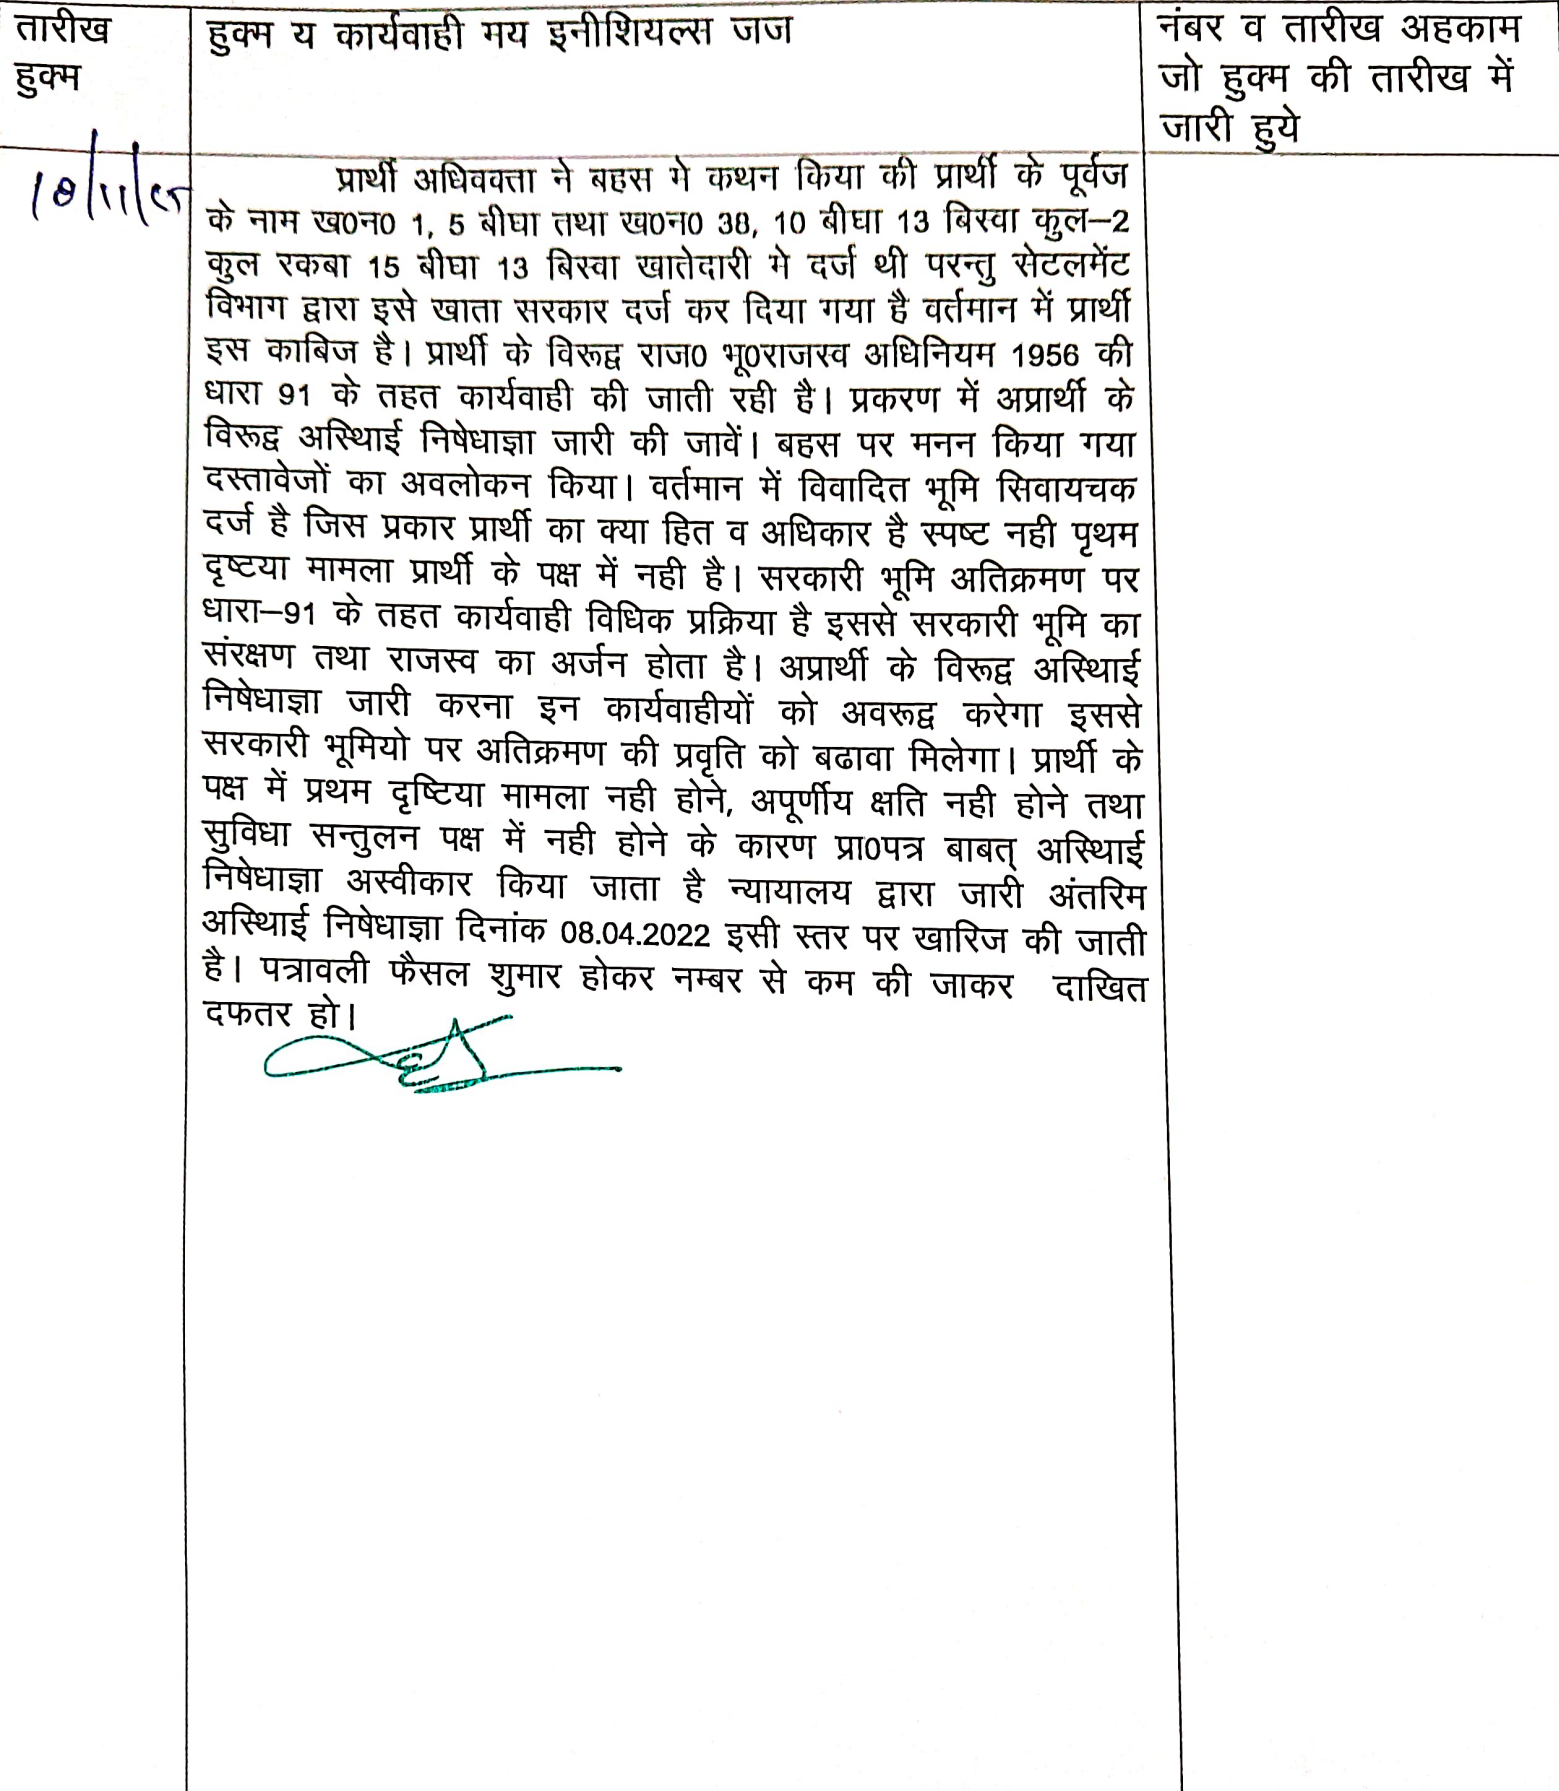 तारीख
हुक्म
हुक्म य कार्यवाही मय इनीशियल्स जज
नंबर व तारीख अहकाम
जो हुक्म की तारीख में
जारी हुये
18/11/25
प्रार्थी अधिवक्ता ने बहस मे कथन किया की प्रार्थी के पूर्वज
के नाम ख0न0 1, 5 बीघा तथा ख0न0 38, 10 बीघा 13 बिस्वा कुल–2
कुल रकबा 15 बीघा 13 बिस्वा खातेदारी मे दर्ज थी परन्तु सेटलमेंट
विभाग द्वारा इसे खाता सरकार दर्ज कर दिया गया है वर्तमान में प्रार्थी
इस काबिज है। प्रार्थी के विरूद्व राज0 भू0राजस्व अधिनियम 1956 की
धारा 91 के तहत कार्यवाही की जाती रही है। प्रकरण में अप्रार्थी के
विरूद्व अस्थिाई निषेधाज्ञा जारी की जावें। बहस पर मनन किया गया
दस्तावेजों का अवलोकन किया। वर्तमान में विवादित भूमि सिवायचक
दर्ज है जिस प्रकार प्रार्थी का क्या हित व अधिकार है स्पष्ट नही पृथम
दृष्टया मामला प्रार्थी के पक्ष में नही है। सरकारी भूमि अतिक्रमण पर
धारा–91 के तहत कार्यवाही विधिक प्रक्रिया है इससे सरकारी भूमि का
संरक्षण तथा राजस्व का अर्जन होता है। अप्रार्थी के विरूद्व अस्थिाई
निषेधाज्ञा जारी करना इन कार्यवाहीयों को अवरूद्व करेगा इससे
सरकारी भूमियो पर अतिक्रमण की प्रवृति को बढावा मिलेगा। प्रार्थी के
पक्ष में प्रथम दृष्टिया मामला नही होने, अपूर्णीय क्षति नही होने तथा
सुविधा सन्तुलन पक्ष में नही होने के कारण प्रा0पत्र बाबत् अस्थिाई
निषेधाज्ञा अस्वीकार किया जाता है न्यायालय द्वारा जारी अंतरिम
अस्थिाई निषेधाज्ञा दिनांक 08.04.2022 इसी स्तर पर खारिज की जाती
है। पत्रावली फैसल शुमार होकर नम्बर से कम की जाकर दाखित
दफतर हो।